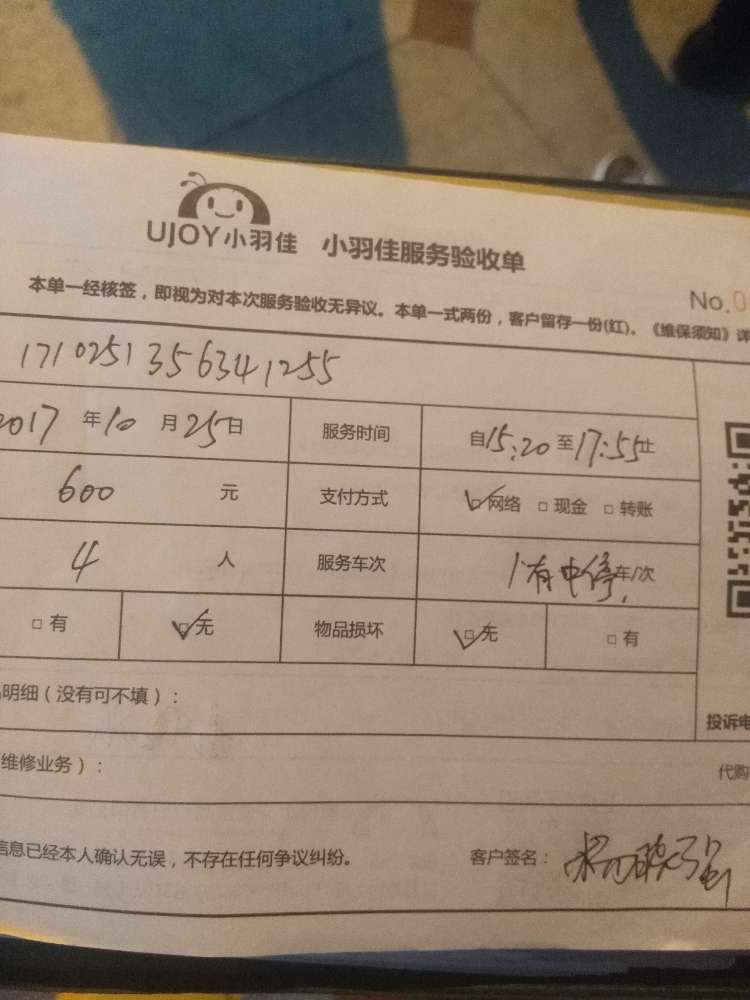 UJOY小羽佳 小羽佳服务验收单
No.0
本单一经核签，即视为对本次服务验收无异议。本单一式两份，客户留存一份(红)。《维保须知》详
1710251356341255
2017 年 10 月 25 日 服务时间 自 15:20 至 17:55 止
600 元 支付方式 ☑网络 □现金 □转账
4 人 服务车次 1有中停 车/次
□有 ☑无 物品损坏 ☑无 □有
明细（没有可不填）：
投诉电
维修业务）：
代购
信息已经本人确认无误，不存在任何争议纠纷。 客户签名：